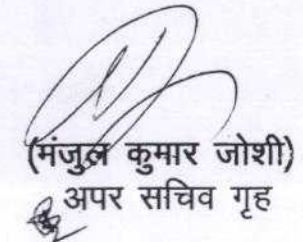 (मंजुल कुमार जोशी)
अपर सचिव गृह